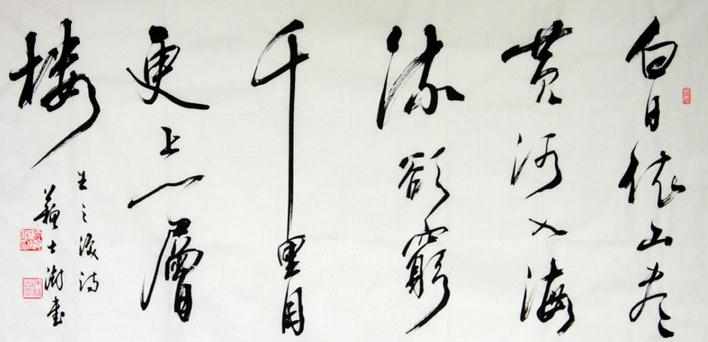 白日依山尽
黄河入海
流欲窮
千里目
更上一層
楼
王之涣诗
蘇士澍書